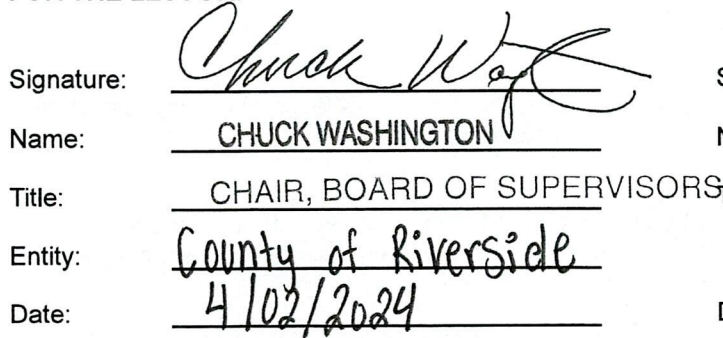 Signature: Chuck Wa
Name: CHUCK WASHINGTON
Title: CHAIR, BOARD OF SUPERVISORS
Entity: County of Riverside
Date: 4/02/2024